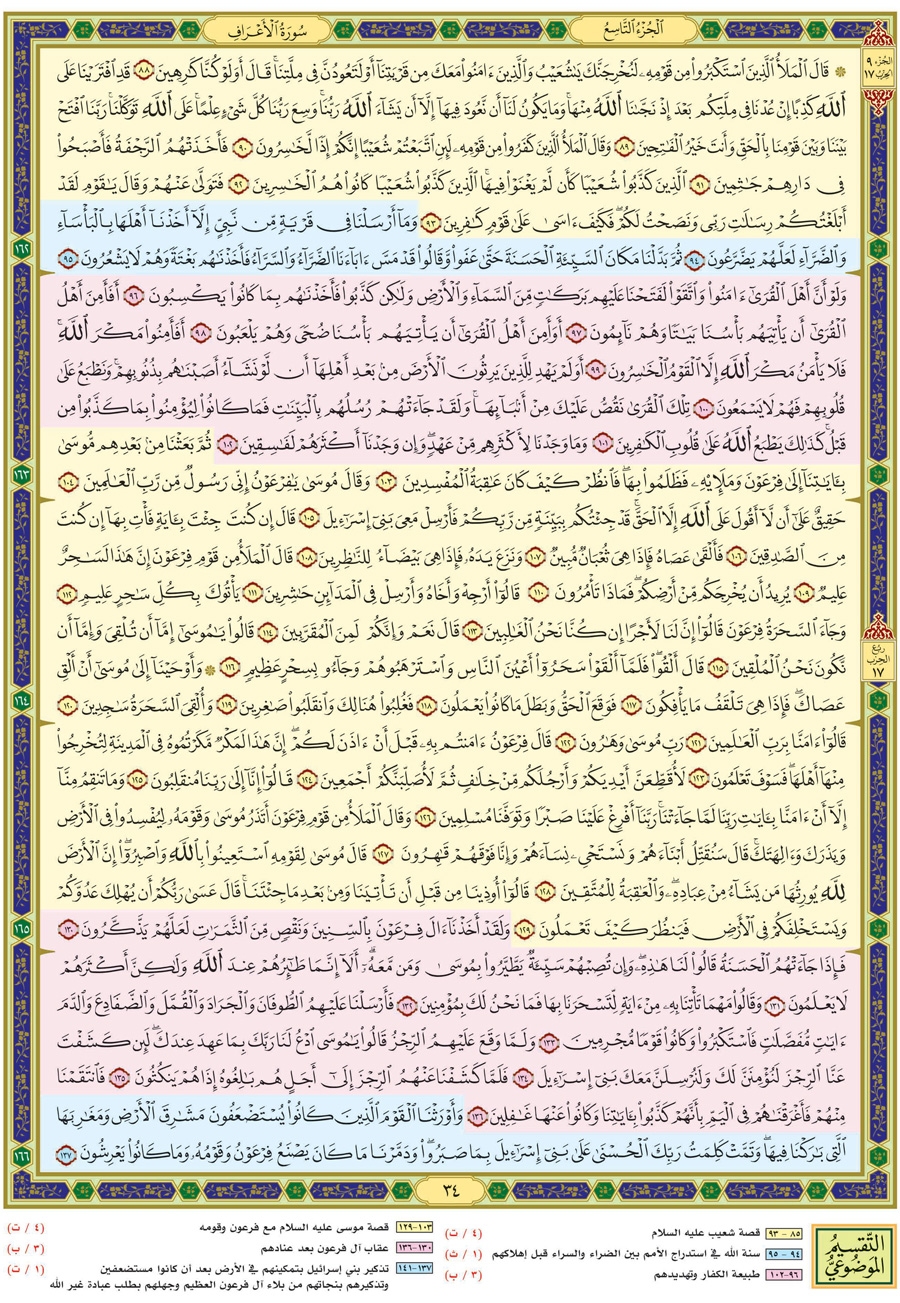 سُورَةُ الْأَعْرَافِ
الْجُزْءُ التَّاسِعُ
الجزء ٩
الحزب ١٧
۞ قَالَ الْمَلَأُ الَّذِينَ اسْتَكْبَرُوا مِن قَوْمِهِ لَنُخْرِجَنَّكَ يَٰشُعَيْبُ وَالَّذِينَ ءَامَنُوا مَعَكَ مِن قَرْيَتِنَا أَوْ لَتَعُودُنَّ فِي مِلَّتِنَا قَالَ أَوَلَوْ كُنَّا كَٰرِهِينَ ٨٨ قَدِ افْتَرَيْنَا عَلَى
اللَّهِ كَذِبًا إِنْ عُدْنَا فِي مِلَّتِكُم بَعْدَ إِذْ نَجَّىٰنَا اللَّهُ مِنْهَا وَمَا يَكُونُ لَنَا أَن نَّعُودَ فِيهَا إِلَّا أَن يَشَاءَ اللَّهُ رَبُّنَا وَسِعَ رَبُّنَا كُلَّ شَيْءٍ عِلْمًا عَلَى اللَّهِ تَوَكَّلْنَا رَبَّنَا افْتَحْ
بَيْنَنَا وَبَيْنَ قَوْمِنَا بِالْحَقِّ وَأَنتَ خَيْرُ الْفَٰتِحِينَ ٨٩ وَقَالَ الْمَلَأُ الَّذِينَ كَفَرُوا مِن قَوْمِهِ لَئِنِ اتَّبَعْتُمْ شُعَيْبًا إِنَّكُمْ إِذًا لَّخَٰسِرُونَ ٩٠ فَأَخَذَتْهُمُ الرَّجْفَةُ فَأَصْبَحُوا
فِي دَارِهِمْ جَٰثِمِينَ ٩١ الَّذِينَ كَذَّبُوا شُعَيْبًا كَأَن لَّمْ يَغْنَوْا فِيهَا الَّذِينَ كَذَّبُوا شُعَيْبًا كَانُوا هُمُ الْخَٰسِرِينَ ٩٢ فَتَوَلَّىٰ عَنْهُمْ وَقَالَ يَٰقَوْمِ لَقَدْ
أَبْلَغْتُكُمْ رِسَٰلَٰتِ رَبِّي وَنَصَحْتُ لَكُمْ فَكَيْفَ ءَاسَىٰ عَلَىٰ قَوْمٍ كَٰفِرِينَ ٩٣ وَمَا أَرْسَلْنَا فِي قَرْيَةٍ مِّن نَّبِيٍّ إِلَّا أَخَذْنَا أَهْلَهَا بِالْبَأْسَاءِ
١٦٢
وَالضَّرَّاءِ لَعَلَّهُمْ يَضَّرَّعُونَ ٩٤ ثُمَّ بَدَّلْنَا مَكَانَ السَّيِّئَةِ الْحَسَنَةَ حَتَّىٰ عَفَوا وَّقَالُوا قَدْ مَسَّ ءَابَاءَنَا الضَّرَّاءُ وَالسَّرَّاءُ فَأَخَذْنَٰهُم بَغْتَةً وَهُمْ لَا يَشْعُرُونَ ٩٥
وَلَوْ أَنَّ أَهْلَ الْقُرَىٰ ءَامَنُوا وَاتَّقَوْا لَفَتَحْنَا عَلَيْهِم بَرَكَٰتٍ مِّنَ السَّمَاءِ وَالْأَرْضِ وَلَٰكِن كَذَّبُوا فَأَخَذْنَٰهُم بِمَا كَانُوا يَكْسِبُونَ ٩٦ أَفَأَمِنَ أَهْلُ
الْقُرَىٰ أَن يَأْتِيَهُم بَأْسُنَا بَيَٰتًا وَهُمْ نَائِمُونَ ٩٧ أَوَأَمِنَ أَهْلُ الْقُرَىٰ أَن يَأْتِيَهُم بَأْسُنَا ضُحًى وَهُمْ يَلْعَبُونَ ٩٨ أَفَأَمِنُوا مَكْرَ اللَّهِ
فَلَا يَأْمَنُ مَكْرَ اللَّهِ إِلَّا الْقَوْمُ الْخَٰسِرُونَ ٩٩ أَوَلَمْ يَهْدِ لِلَّذِينَ يَرِثُونَ الْأَرْضَ مِن بَعْدِ أَهْلِهَا أَن لَّوْ نَشَاءُ أَصَبْنَٰهُم بِذُنُوبِهِمْ وَنَطْبَعُ عَلَىٰ
قُلُوبِهِمْ فَهُمْ لَا يَسْمَعُونَ ١٠٠ تِلْكَ الْقُرَىٰ نَقُصُّ عَلَيْكَ مِنْ أَنبَائِهَا وَلَقَدْ جَاءَتْهُمْ رُسُلُهُم بِالْبَيِّنَٰتِ فَمَا كَانُوا لِيُؤْمِنُوا بِمَا كَذَّبُوا مِن
قَبْلُ كَذَٰلِكَ يَطْبَعُ اللَّهُ عَلَىٰ قُلُوبِ الْكَٰفِرِينَ ١٠١ وَمَا وَجَدْنَا لِأَكْثَرِهِم مِّنْ عَهْدٍ وَإِن وَجَدْنَا أَكْثَرَهُمْ لَفَٰسِقِينَ ١٠٢ ثُمَّ بَعَثْنَا مِن بَعْدِهِم مُّوسَىٰ
١٦٣
بِـَٔايَٰتِنَا إِلَىٰ فِرْعَوْنَ وَمَلَإِيْهِ فَظَلَمُوا بِهَا فَانظُرْ كَيْفَ كَانَ عَٰقِبَةُ الْمُفْسِدِينَ ١٠٣ وَقَالَ مُوسَىٰ يَٰفِرْعَوْنُ إِنِّي رَسُولٌ مِّن رَّبِّ الْعَٰلَمِينَ ١٠٤
حَقِيقٌ عَلَىٰ أَن لَّا أَقُولَ عَلَى اللَّهِ إِلَّا الْحَقَّ قَدْ جِئْتُكُم بِبَيِّنَةٍ مِّن رَّبِّكُمْ فَأَرْسِلْ مَعِيَ بَنِي إِسْرَٰءِيلَ ١٠٥ قَالَ إِن كُنتَ جِئْتَ بِـَٔايَةٍ فَأْتِ بِهَا إِن كُنتَ
مِنَ الصَّٰدِقِينَ ١٠٦ فَأَلْقَىٰ عَصَاهُ فَإِذَا هِيَ ثُعْبَانٌ مُّبِينٌ ١٠٧ وَنَزَعَ يَدَهُ فَإِذَا هِيَ بَيْضَاءُ لِلنَّٰظِرِينَ ١٠٨ قَالَ الْمَلَأُ مِن قَوْمِ فِرْعَوْنَ إِنَّ هَٰذَا لَسَٰحِرٌ
عَلِيمٌ ١٠٩ يُرِيدُ أَن يُخْرِجَكُم مِّنْ أَرْضِكُمْ فَمَاذَا تَأْمُرُونَ ١١٠ قَالُوا أَرْجِهْ وَأَخَاهُ وَأَرْسِلْ فِي الْمَدَائِنِ حَٰشِرِينَ ١١١ يَأْتُوكَ بِكُلِّ سَٰحِرٍ عَلِيمٍ ١١٢
وَجَاءَ السَّحَرَةُ فِرْعَوْنَ قَالُوا إِنَّ لَنَا لَأَجْرًا إِن كُنَّا نَحْنُ الْغَٰلِبِينَ ١١٣ قَالَ نَعَمْ وَإِنَّكُمْ لَمِنَ الْمُقَرَّبِينَ ١١٤ قَالُوا يَٰمُوسَىٰ إِمَّا أَن تُلْقِيَ وَإِمَّا أَن
ربع
الحزب
١٧
نَّكُونَ نَحْنُ الْمُلْقِينَ ١١٥ قَالَ أَلْقُوا فَلَمَّا أَلْقَوْا سَحَرُوا أَعْيُنَ النَّاسِ وَاسْتَرْهَبُوهُمْ وَجَاءُو بِسِحْرٍ عَظِيمٍ ١١٦ ۞ وَأَوْحَيْنَا إِلَىٰ مُوسَىٰ أَنْ أَلْقِ
١٦٤
عَصَاكَ فَإِذَا هِيَ تَلْقَفُ مَا يَأْفِكُونَ ١١٧ فَوَقَعَ الْحَقُّ وَبَطَلَ مَا كَانُوا يَعْمَلُونَ ١١٨ فَغُلِبُوا هُنَالِكَ وَانقَلَبُوا صَٰغِرِينَ ١١٩ وَأُلْقِيَ السَّحَرَةُ سَٰجِدِينَ ١٢٠
قَالُوا ءَامَنَّا بِرَبِّ الْعَٰلَمِينَ ١٢١ رَبِّ مُوسَىٰ وَهَٰرُونَ ١٢٢ قَالَ فِرْعَوْنُ ءَامَنتُم بِهِ قَبْلَ أَنْ ءَاذَنَ لَكُمْ إِنَّ هَٰذَا لَمَكْرٌ مَّكَرْتُمُوهُ فِي الْمَدِينَةِ لِتُخْرِجُوا
مِنْهَا أَهْلَهَا فَسَوْفَ تَعْلَمُونَ ١٢٣ لَأُقَطِّعَنَّ أَيْدِيَكُمْ وَأَرْجُلَكُم مِّنْ خِلَٰفٍ ثُمَّ لَأُصَلِّبَنَّكُمْ أَجْمَعِينَ ١٢٤ قَالُوا إِنَّا إِلَىٰ رَبِّنَا مُنقَلِبُونَ ١٢٥ وَمَا تَنقِمُ مِنَّا
إِلَّا أَنْ ءَامَنَّا بِـَٔايَٰتِ رَبِّنَا لَمَّا جَاءَتْنَا رَبَّنَا أَفْرِغْ عَلَيْنَا صَبْرًا وَتَوَفَّنَا مُسْلِمِينَ ١٢٦ وَقَالَ الْمَلَأُ مِن قَوْمِ فِرْعَوْنَ أَتَذَرُ مُوسَىٰ وَقَوْمَهُ لِيُفْسِدُوا فِي الْأَرْضِ
وَيَذَرَكَ وَءَالِهَتَكَ قَالَ سَنُقَتِّلُ أَبْنَاءَهُمْ وَنَسْتَحْيِي نِسَاءَهُمْ وَإِنَّا فَوْقَهُمْ قَٰهِرُونَ ١٢٧ قَالَ مُوسَىٰ لِقَوْمِهِ اسْتَعِينُوا بِاللَّهِ وَاصْبِرُوا إِنَّ الْأَرْضَ
لِلَّهِ يُورِثُهَا مَن يَشَاءُ مِنْ عِبَادِهِ وَالْعَٰقِبَةُ لِلْمُتَّقِينَ ١٢٨ قَالُوا أُوذِينَا مِن قَبْلِ أَن تَأْتِيَنَا وَمِن بَعْدِ مَا جِئْتَنَا قَالَ عَسَىٰ رَبُّكُمْ أَن يُهْلِكَ عَدُوَّكُمْ
١٦٥
وَيَسْتَخْلِفَكُمْ فِي الْأَرْضِ فَيَنظُرَ كَيْفَ تَعْمَلُونَ ١٢٩ وَلَقَدْ أَخَذْنَا ءَالَ فِرْعَوْنَ بِالسِّنِينَ وَنَقْصٍ مِّنَ الثَّمَرَٰتِ لَعَلَّهُمْ يَذَّكَّرُونَ ١٣٠
فَإِذَا جَاءَتْهُمُ الْحَسَنَةُ قَالُوا لَنَا هَٰذِهِ وَإِن تُصِبْهُمْ سَيِّئَةٌ يَطَّيَّرُوا بِمُوسَىٰ وَمَن مَّعَهُ أَلَا إِنَّمَا طَٰئِرُهُمْ عِندَ اللَّهِ وَلَٰكِنَّ أَكْثَرَهُمْ
لَا يَعْلَمُونَ ١٣١ وَقَالُوا مَهْمَا تَأْتِنَا بِهِ مِنْ ءَايَةٍ لِّتَسْحَرَنَا بِهَا فَمَا نَحْنُ لَكَ بِمُؤْمِنِينَ ١٣٢ فَأَرْسَلْنَا عَلَيْهِمُ الطُّوفَانَ وَالْجَرَادَ وَالْقُمَّلَ وَالضَّفَادِعَ وَالدَّمَ
ءَايَٰتٍ مُّفَصَّلَٰتٍ فَاسْتَكْبَرُوا وَكَانُوا قَوْمًا مُّجْرِمِينَ ١٣٣ وَلَمَّا وَقَعَ عَلَيْهِمُ الرِّجْزُ قَالُوا يَٰمُوسَى ادْعُ لَنَا رَبَّكَ بِمَا عَهِدَ عِندَكَ لَئِن كَشَفْتَ
عَنَّا الرِّجْزَ لَنُؤْمِنَنَّ لَكَ وَلَنُرْسِلَنَّ مَعَكَ بَنِي إِسْرَٰءِيلَ ١٣٤ فَلَمَّا كَشَفْنَا عَنْهُمُ الرِّجْزَ إِلَىٰ أَجَلٍ هُم بَٰلِغُوهُ إِذَا هُمْ يَنكُثُونَ ١٣٥ فَانتَقَمْنَا
مِنْهُمْ فَأَغْرَقْنَٰهُمْ فِي الْيَمِّ بِأَنَّهُمْ كَذَّبُوا بِـَٔايَٰتِنَا وَكَانُوا عَنْهَا غَٰفِلِينَ ١٣٦ وَأَوْرَثْنَا الْقَوْمَ الَّذِينَ كَانُوا يُسْتَضْعَفُونَ مَشَٰرِقَ الْأَرْضِ وَمَغَٰرِبَهَا
١٦٦
الَّتِي بَٰرَكْنَا فِيهَا وَتَمَّتْ كَلِمَتُ رَبِّكَ الْحُسْنَىٰ عَلَىٰ بَنِي إِسْرَٰءِيلَ بِمَا صَبَرُوا وَدَمَّرْنَا مَا كَانَ يَصْنَعُ فِرْعَوْنُ وَقَوْمُهُ وَمَا كَانُوا يَعْرِشُونَ ١٣٧
٣٤
التَّقْسِيمُ
الْمَوْضُوعِيُّ
٨٥ - ٩٣ قصة شعيب عليه السلام (٤ / ت)
٩٤ - ٩٥ سنة الله في استدراج الأمم بين الضراء والسراء قبل إهلاكهم (١ / ث)
٩٦-١٠٢ طبيعة الكفار وتهديدهم (٣ / ب)
١٠٣-١٢٩ قصة موسى عليه السلام مع فرعون وقومه (٤ / ت)
١٣٠-١٣٦ عقاب آل فرعون بعد عنادهم (٣ / ب)
١٣٧-١٤١ تذكير بني إسرائيل بتمكينهم في الأرض بعد أن كانوا مستضعفين (١ / ت)
وتذكيرهم بنجاتهم من بلاء آل فرعون العظيم وجهلهم بطلب عبادة غير الله